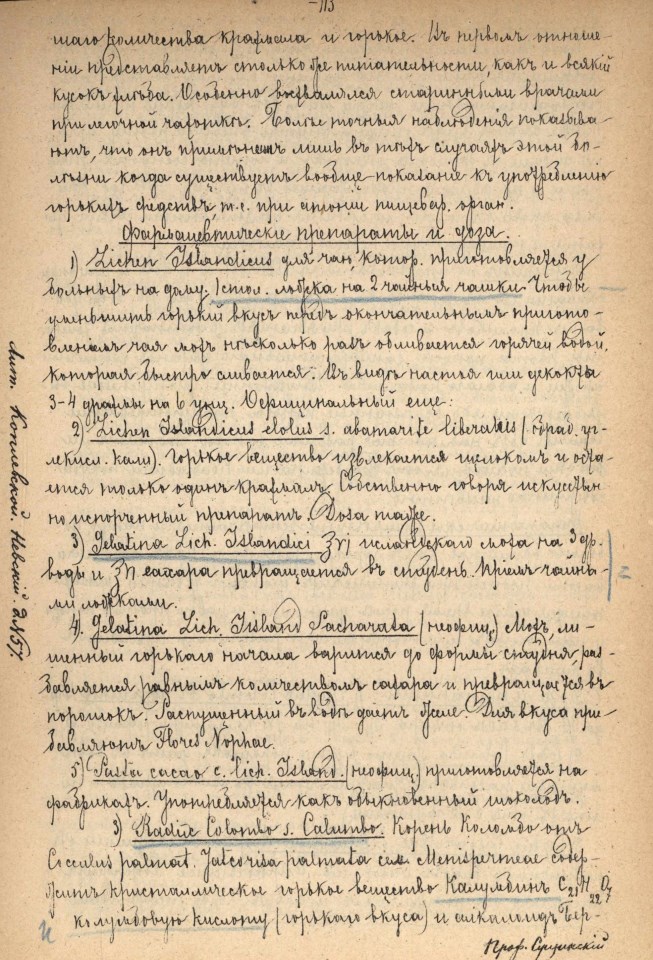 -113
шаго количества крахмала и горькое. Въ первомъ отноше-
ніи представляетъ столько же питательности, какъ и всякій
кусокъ хлѣба. Особенно восхвалялся старинными врачами
при легочной чахоткѣ. Болѣе точныя наблюденія показыва-
ютъ, что онъ примѣнимъ лишь въ тѣхъ случаяхъ этой бо-
лѣзни когда существуетъ вообще показаніе къ употребленію
горькихъ средствъ, т.е. при атоніи пищевар. орган.
Фармацевтическіе препараты и доза.
1) Lichen Islandicus для чаю, котор. приготовляется у
больныхъ на дому. 1 стол. ложка на 2 чайныя чашки. Чтобы
уменьшить горькій вкусъ передъ окончательнымъ пригото-
вленіемъ чая мохъ нѣсколько разъ обливается горячей водой,
которая быстро сливается. Въ видѣ настоя или декокта
3-4 драхмы на 6 унц. Официнальный еще:
2) Lichen Islandicus elotus s. abamarite liberatus (обраб. уг-
лекисл. кали). Горькое вещество извлекается щелокомъ и оста-
ется только одинъ крахмалъ. Собственно говоря искусствен-
но испорченный препаратъ. Доза таже.
3) Gelatina Lich. Islandici ℥vj исландскаго моха на 3 др.
воды и ℥vj сахара превращается въ студень. Пріемъ чайны-
ми ложками.
4). Gelatina Lich. Island Sacharata (неофиц.) Мохъ, ли-
шенный горькаго начала варится до формы студня, раз-
бавляется равнымъ количествомъ сахара и превращается въ
порошокъ. Распущенный въ водѣ даетъ желе. Для вкуса при-
бавляютъ Flores Naphae.
5) Pasta cacao c. lich. Island. (неофиц.) приготовляется на
фабрикахъ. Употребляется какъ обыкновенный шоколадъ.
3) Radix Colombo s. Calumbo. Корень Коломбо отъ
Cocculus palmat. Jateorisa palmata сем. Menispermeae содер-
житъ кристаллическое горькое вещество Калумбинъ C21 H22 O7
колумбовую кислоту (горькаго вкуса) и алкалоидъ Бер-
Проф. Сущинскій
Лит. Невскій д. № 57.